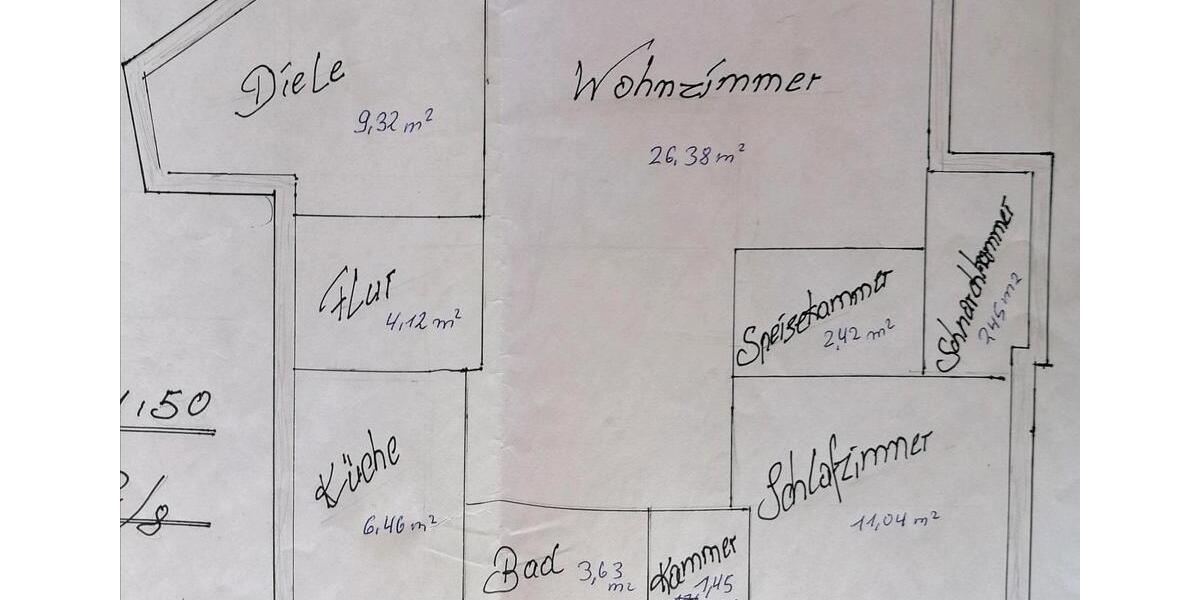 Diele
9,32 m²
Wohnzimmer
26,38 m²
Flur
4,12 m²
Speisekammer
2,42 m²
Schnarchkammer
2,45 m2
1,50
Küche
6,46 m²
Schlafzimmer
11,04 m²
/8
Bad 3,63
m2
Kammer
1,45